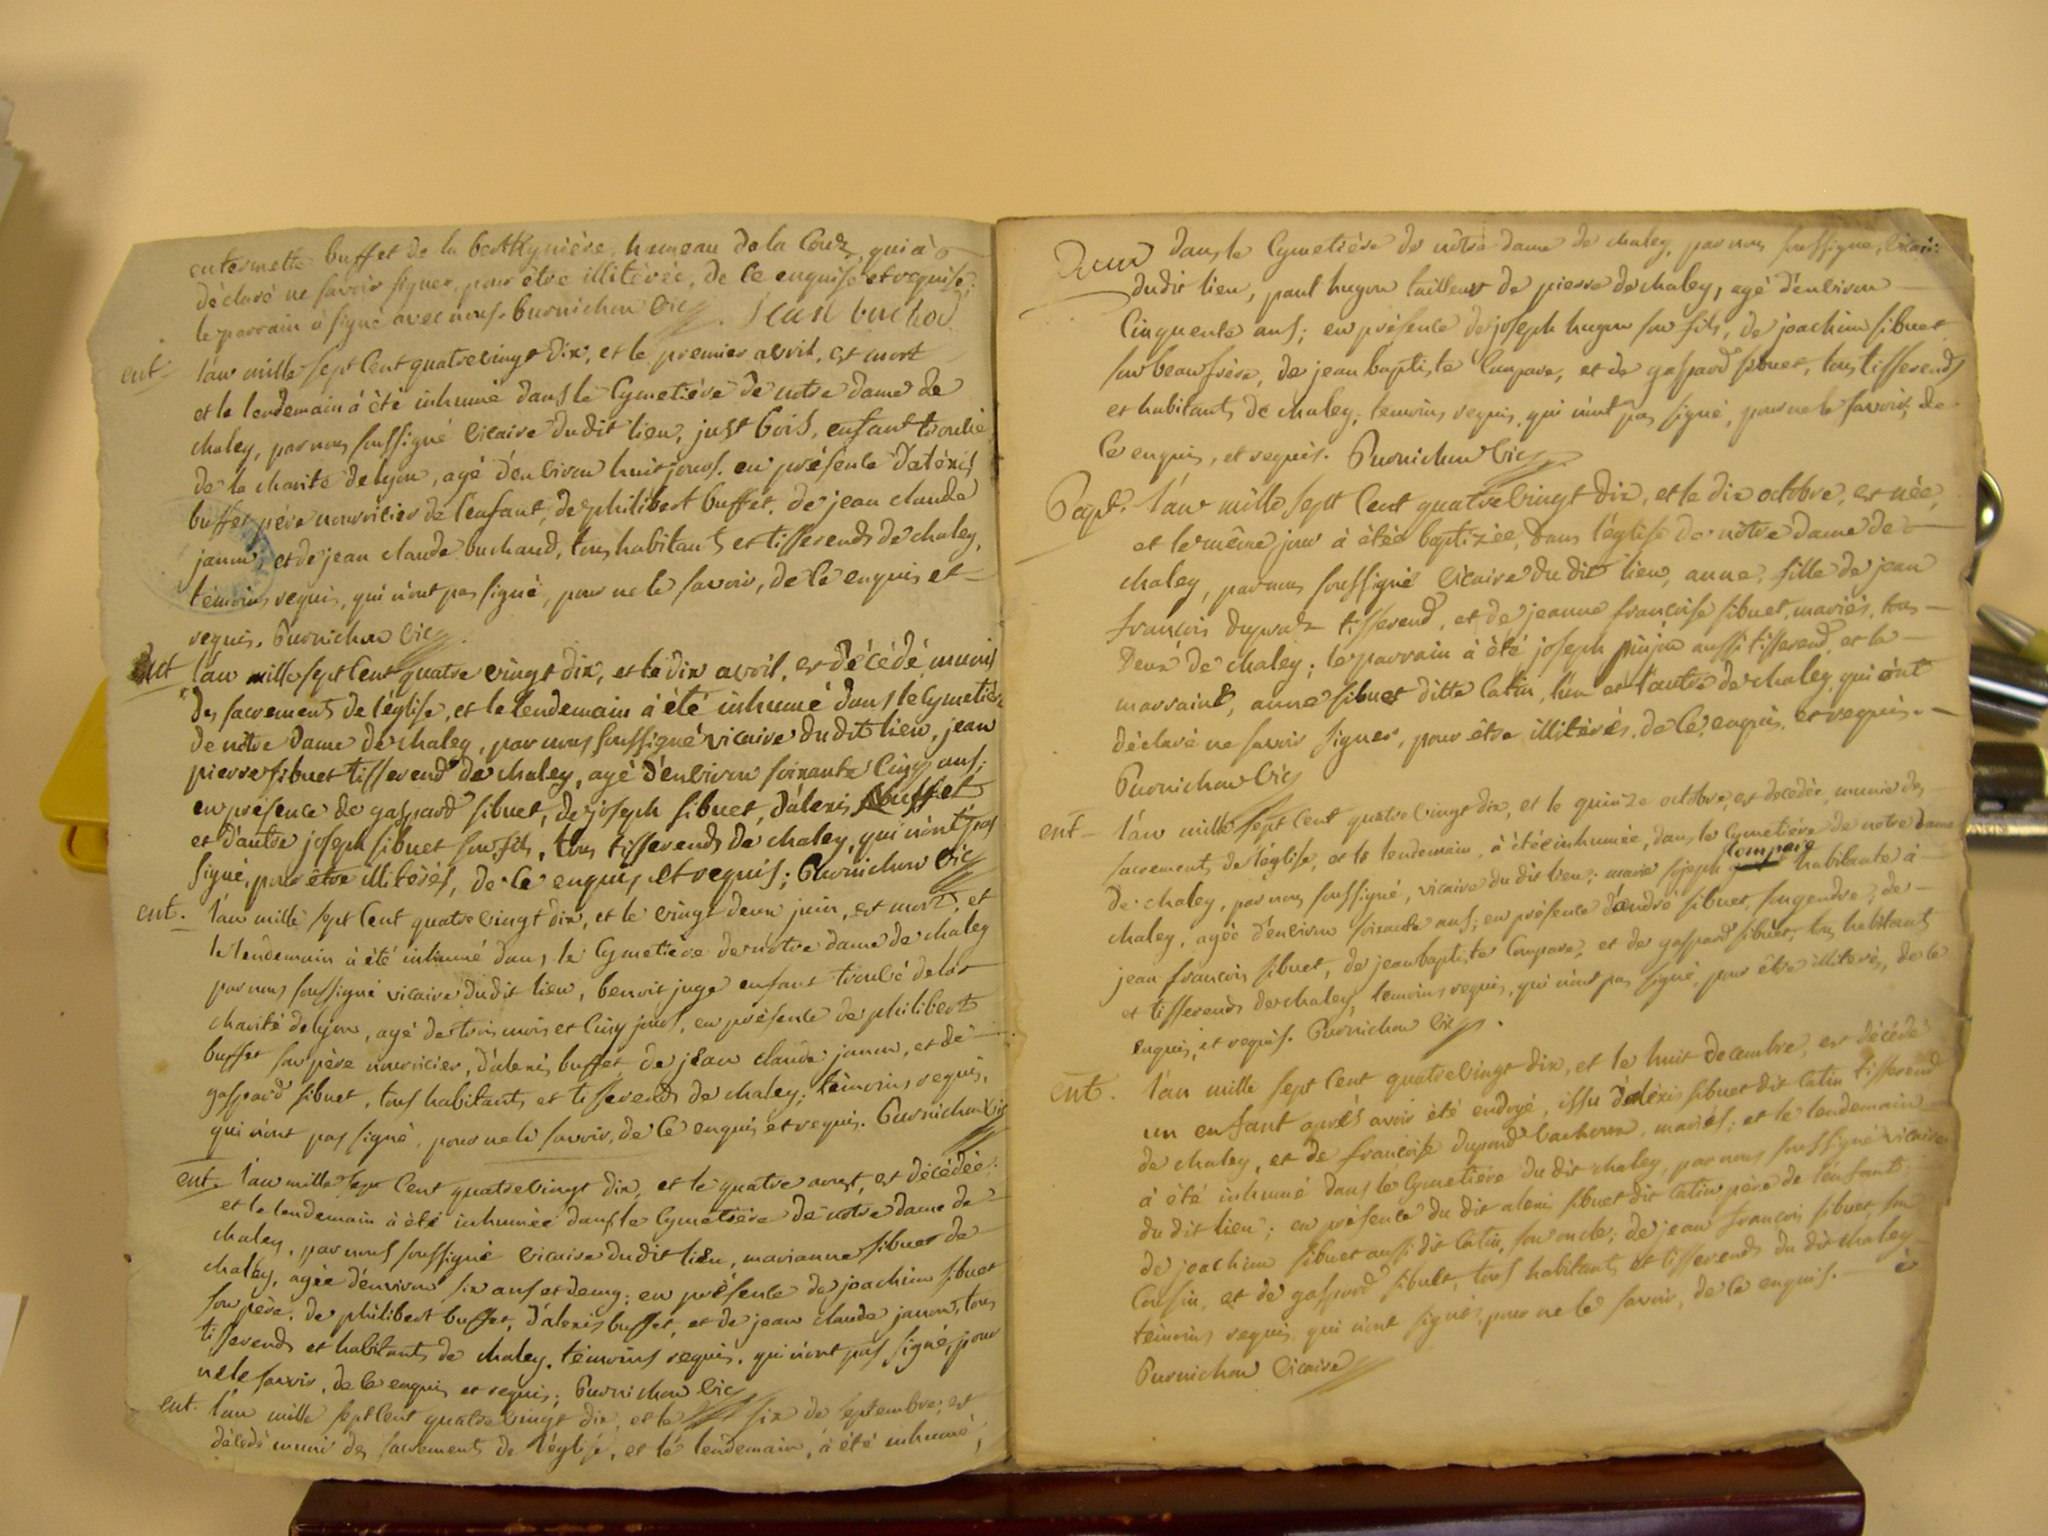 buffet de la hameau de la Couz, qui à
déclaré ne savoir signer, pour être illitérée, de ce enquise et requise;
le parrain à signé avec nous. Burnichon Vic
ent. l'an mille sept cent quatre vingt dix, et le premier avril, est mort
et le lendemain à été inhumé dans le Cymetière de notre dame de
chaley, par nous soussigné vicaire du dit lieu, just bois, enfant trouvé
de la charité de lyon, agé d'environ huit jours. en présence d'aléxis
buffet père nourricier de l'enfant, de philibert buffet, de jean claude
janin, et de jean claude buchard, tous habitants et tisserends de chaley,
témoins requis, qui n'ont pas signé, pour ne le savoir, de ce enquis et
requis. Burnichon Vic
ent l'an mille sept cent quatre vingt dix, et le dix avril, est décédé munis
des sacrements de l'église, et le lendemain à été inhumé dans le Cymetière
de nôtre dame de chaley, par nous soussigné vicaire du dit lieu, jean
pierre sibuet tisserend de chaley, agé d'environ soixante cinq ans;
en présence de gaspard sibuet, de joseph sibuet, d'alexis buffet
et d'autre joseph sibuet son fils, tous tisserends de chaley, qui n'ont pas
signé, pour être illitérés, de ce enquis et requis; Burnichon Vic
ent. l'an mille sept cent quatre vingt dix, et le vingt deux juin, est mort, et
le lendemain à été inhumé dans le Cymetière de nôtre dame de chaley
par nous soussigné vicaire du dit lieu, benoit juge enfant trouvé de la
charité de lyon, agé de trois mois et cinq jours, en présence de philibert
buffet son père nourricier, d'alexis buffet, de jean claude janin, et de
gaspard sibuet, tous habitants et tisserends de chaley; témoins requis,
qui n'ont pas signé, pour ne le savoir, de ce enquis et requis. Burnichon Vic
ent. l'an mille sept cent quatre vingt dix, et le quatre aoust, est décédée;
et le lendemain à été inhumée dans le Cymetière de notre dame de
chaley, par nous soussigné vicaire du dit lieu, marianne sibuet de
chaley, agée d'environ six ans et demy; en présence de joachim sibuet
son père, de philibert buffet, d'alexis buffet, et de jean claude janin, tous
tisserends et habitants de chaley, témoins requis, qui n'ont pas signé, pour
ne le savoir, de ce enquis et requis; Burnichon Vic
ent. l'an mille sept cent quatre vingt dix, et le six de septembre, est
décédé muni des sacrements de l'église, et le lendemain, à été inhumé,
dans le Cymetière de nôtre dame de chaley, par nous soussigné, vicaire
dudit lieu, paul hugon tailleur de pierre de chaley, agé d'environ
cinquante ans; en présence de joseph hugon son fils, de joachim sibuet
son beau frère, de jean baptiste Compare, et de gaspard sibuet, tous tisserends
et habitants de chaley; temoins requis, qui n'ont pas signé, pour ne le savoir, de
ce enquis, et requis. Burnichon Vic
Bapt. l'an mille sept cent quatre vingt dix, et le dix octobre, est née,
et le même jour à étée baptizée, dans l'église de nôtre dame de
chaley, par nous soussigné vicaire du dit lieu, anne, fille de jean
françois dupraz tisserend, et de jeanne françoise sibuet, mariés, tous
deux de chaley; le parrain à été joseph aussi tisserend, et la
marraine, anne sibuet ditte Catin, l'un et l'autre de chaley, qui ont
déclaré ne savoir signer, pour être illitérés, de ce enquis, et requis.
Burnichon Vic
ent. l'an mille sept cent quatre vingt dix, et le quinze octobre, est décédée, munie des
sacrements de l'église, et le lendemain, à étée inhumée, dans le Cymetière de notre dame
de chaley, par nous soussigné, vicaire du dit lieu; marie joseph compare habitante à
chaley, agée d'environ soixante ans; en présence d'andré sibuet, son gendre, de
jean françois sibuet, de jean baptiste Compare, et de gaspard sibuet, tous habitants
et tisserends de chaley, temoins requis, qui n'ont pas signé, pour être illiterés, de ce
enquis, et requis. Burnichon Vic
ent. l'an mille sept cent quatre vingt dix, et le huit decembre, est décédé
un enfant après avoir été endoyé, issu d'aléxis sibuet dit Catin tisserend
de chaley, et de françoise dupond mariés; et le lendemain
à été inhumé dans le Cymetière du dit chaley, par nous soussigné vicaire
du dit lieu; en présence du dit alexis sibuet dit Catin père de l'enfant
de joachim sibuet aussi dit Catin, son oncle; de jean françois sibuet, son
Cousin, et de gaspard sibuet, tous habitants et tisserends du dit chaley
témoins requis, qui n'ont signés, pour ne le savoir, de ce enquis. è
Burnichon Vicaire